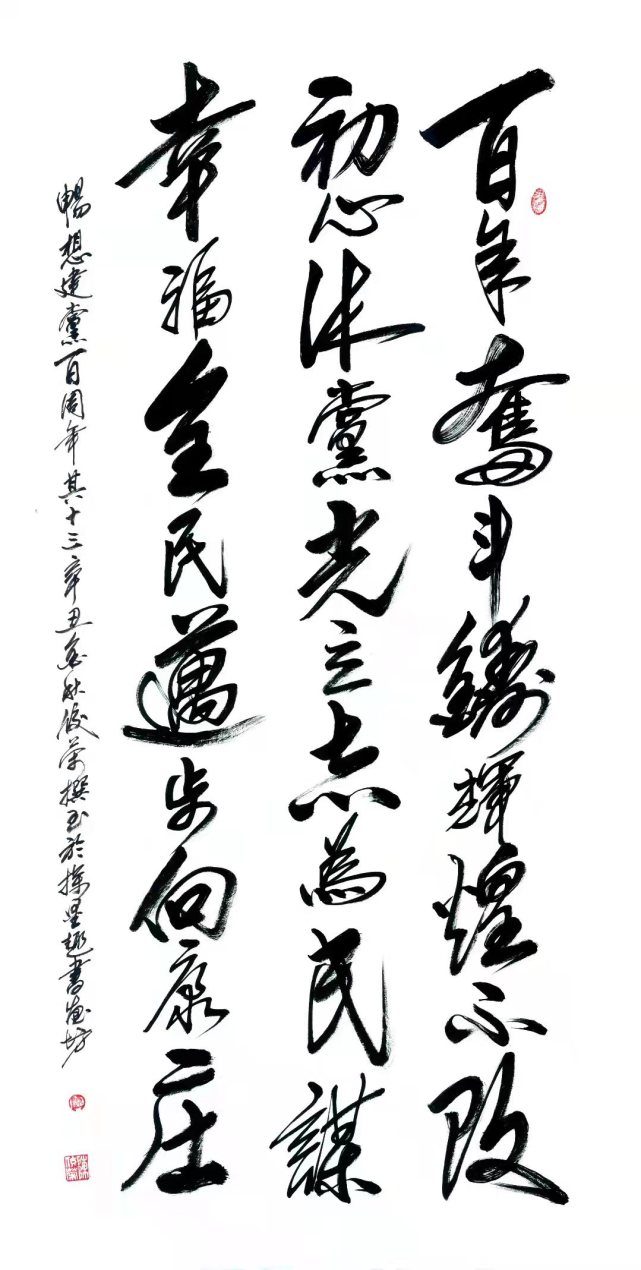 百年奮斗鑄輝煌不改
初心沐黨光立志為民謀
幸福全民邁步向康庄
暢想建黨百周年其十三辛丑金秋俊荣撰书於星趣書画坊